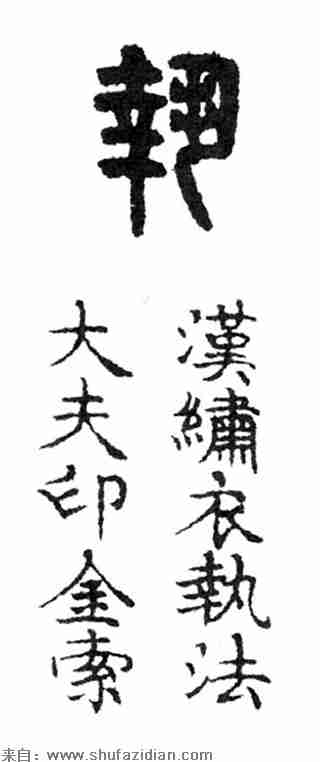 執
漢繡衣執法
大夫印金索
来自：www.shufazidian.com